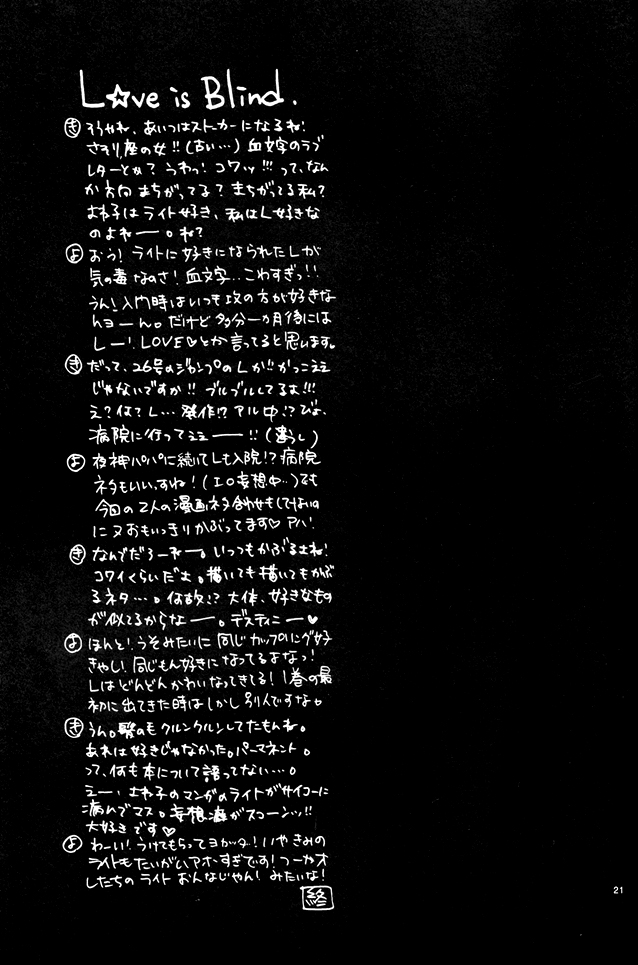 L☆ve is Blind.
き そうかね、あいつはストーカーになるね!
さそり座の女!!(古い…)血文字のラブ
レターとか? うわっ! コワッ!!! って、なん
か方向まちがってる? まちがってる私?
よね子はライト好き、私はL好きな
のよねー。ね?
よ おう! ライトに好きになられたLが
気の毒なのさ! 血文字…こわすぎっ!!
うん! 入門時はいつも攻の方が好きな
んヨーん。だけど多分一か月後には
Lー! LOVE♡とか言ってると思います。
き だって、26号のジャンプのLが!! かっこええ
じゃないですか!! プルプルしてるよ!!!
え? 何? L… 発作!? アル中!? びょ、
病院に行ってええーー!!(落らし)
よ 夜神パパに続いてLも入院!? 病院
ネタもいいすね!(エロ妄想中…)でも
今回の2人の漫画ネタ合わせもしてないの
にヌおもいっきりかぶってます♡ アハ!
き なんでだろーねー。いっつもかぶるよね!
コワイくらいだよ。描いても描いてもかぶ
るネタ…。何故!? 大体、好きなもの
が似てるからなー。デスティニー♥
よ ほんと! うそみたいに同じカップリング好
きやし! 同じもん好きになってるよなっ!
Lはどんどんかわいなってきてる! 1巻の最
初に出てきた時はしかし別人ですな。
き うん。髪の毛クルンクルンしてたもんね。
あれは好きじゃなかった。パーマネント。
って、何も本について語ってない…。
えー、よね子のマンガのライトがサイコーに
病んでマス。妄想癖がスコーンッ!!
大好きです♡
よ わーい! うけてもらってヨカッタ! いやきみの
ライトもたいがいアホすぎです! つーかオ
レたちのライト おんなじゃん! みたいな!
終
21